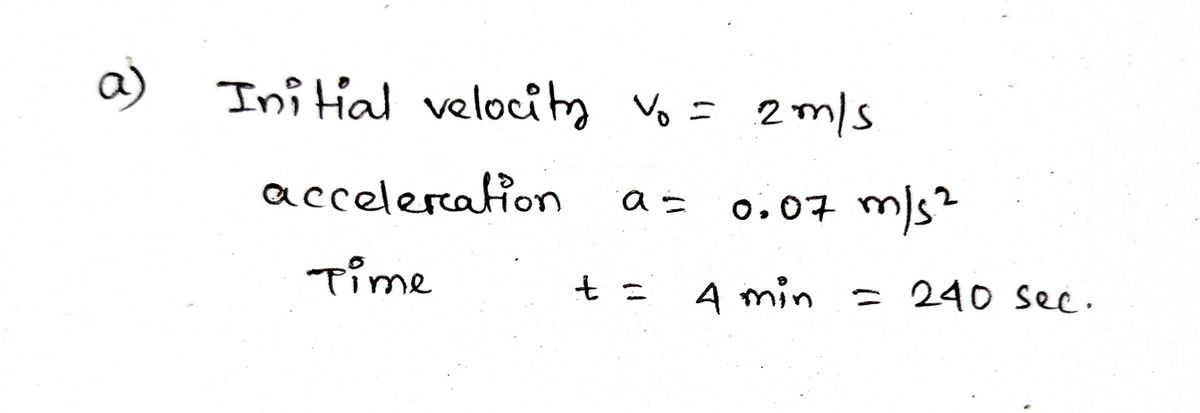 a) Initial velocity v₀ = 2 m/s
acceleration a = 0.07 m/s²
Time t = 4 min = 240 sec.